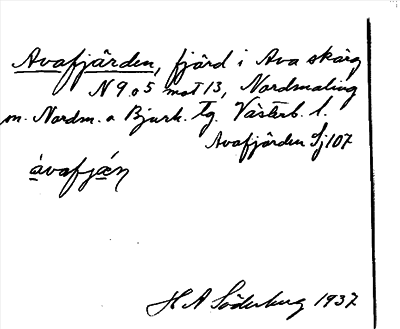 Avafjärden, fjärd i Ava skärg
N 9 o 5 mot 13, Nordmaling
m. Nordm. o Bjurh. tg. Västerb. l.
Avafjärden Sj 107
ávafjæ̀ṇ
H A Söderberg 1937